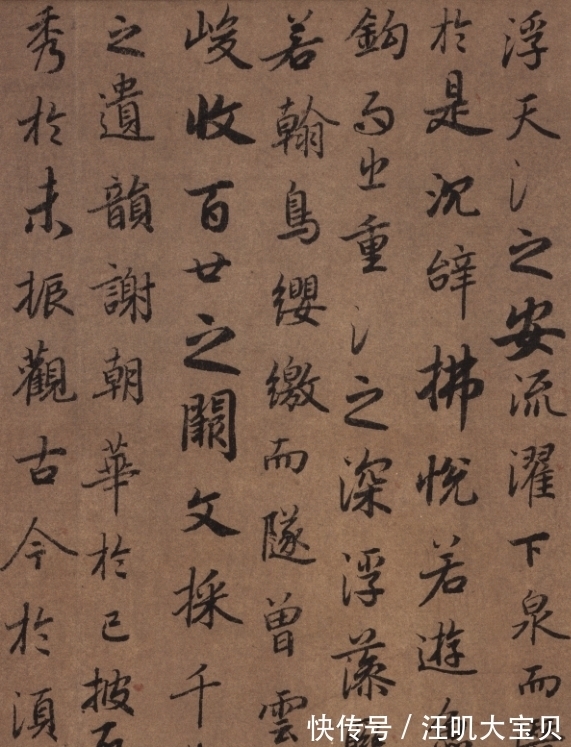 浮天氵之安流濯下泉而
於是沉辝拂悅若遊
鈎而出重氵之深浮藻
若翰鳥纓繳而隧曾雲
峻收百廿之闕文採千
之遺韻謝朝華於已披
秀於未振觀古今於須
快传号 / 汪叽大宝贝